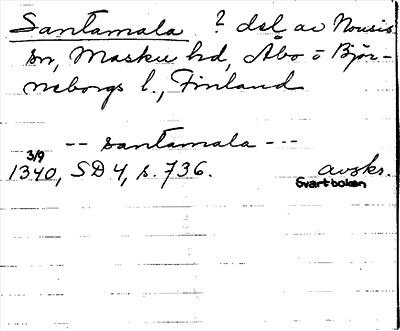 Santamala ? del av Nousis
sn, Masku hd, Åbo o Björ-
neborgs l., Finland
-- santamala ---
3/9
1340, SD 4, s. 736. avskr.
Svartboken